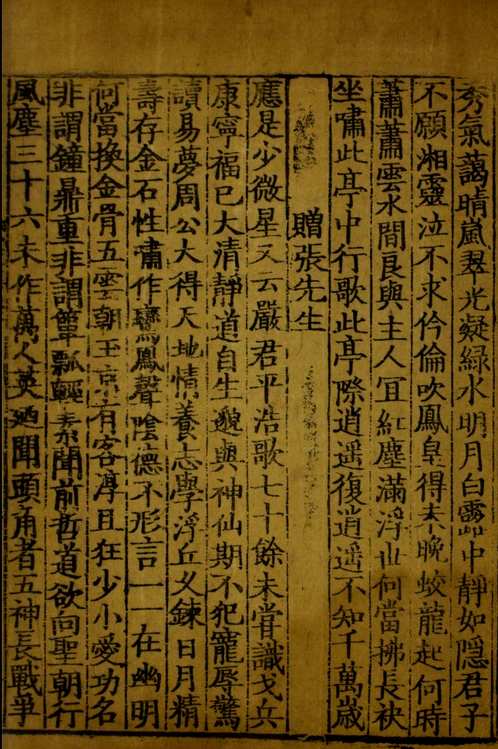 秀氣藹晴嵐翠光凝綠水明月白露中靜如隱君子
不願湘靈泣不求伶倫吹鳳皇得未晚蛟龍起何時
蕭蕭雲水間良與主人宜紅塵滿浮世何當拂長袂
坐嘯此亭中行歌此亭際逍遥復逍遥不知千萬歲
贈張先生
應是少微星又云嚴君平浩歌七十餘未嘗識戈兵
康寧福已大清靜道自生邈與神仙期不犯寵辱驚
讀易夢周公大得天地情養志學浮丘久鍊日月精
壽存金石性嘯作鸞鳳聲陰德不形言一一在幽明
何當換金骨五雲朝玉京有客淳且狂少小愛功名
非謂鐘鼎重非謂簞瓢輕素聞前哲道欲向聖朝行
風塵三十六未作萬人英廼聞頭角者五神長戰爭